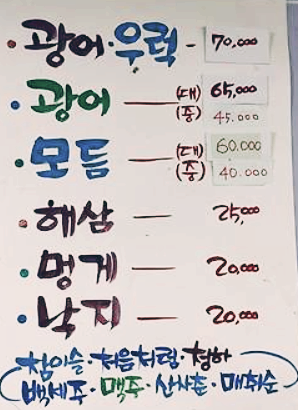 • 광어·우럭 - 70,000
• 광어 — (대) 65,000
(중) 45.000
• 모듬 — (대) 60.000
(중) 40.000
• 해삼 — 25,000
• 멍게 — 20,000
• 낙지 — 20,000
참이슬·처음처럼·청하
백세주·맥주·산사춘·매취순